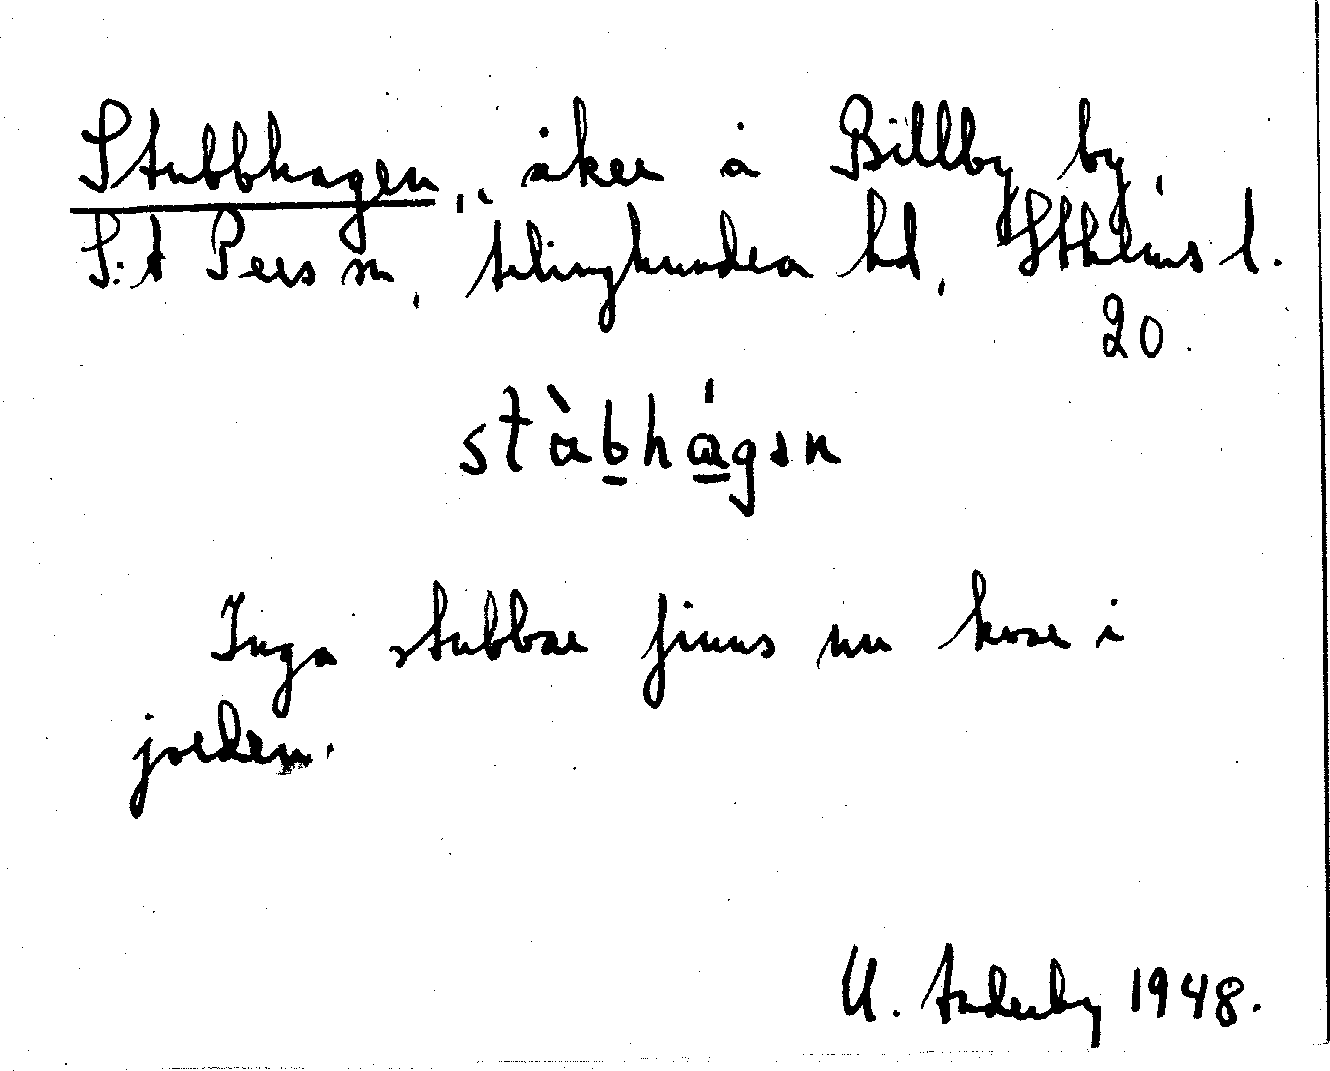 Stubbhagen, åker å Billby by,
S:t Pers sn, Seminghundra hd, Sthlms l.
20
stàbhágən
Inga stubbar finns nu kvar i
jorden.
U. Anderby 1948.